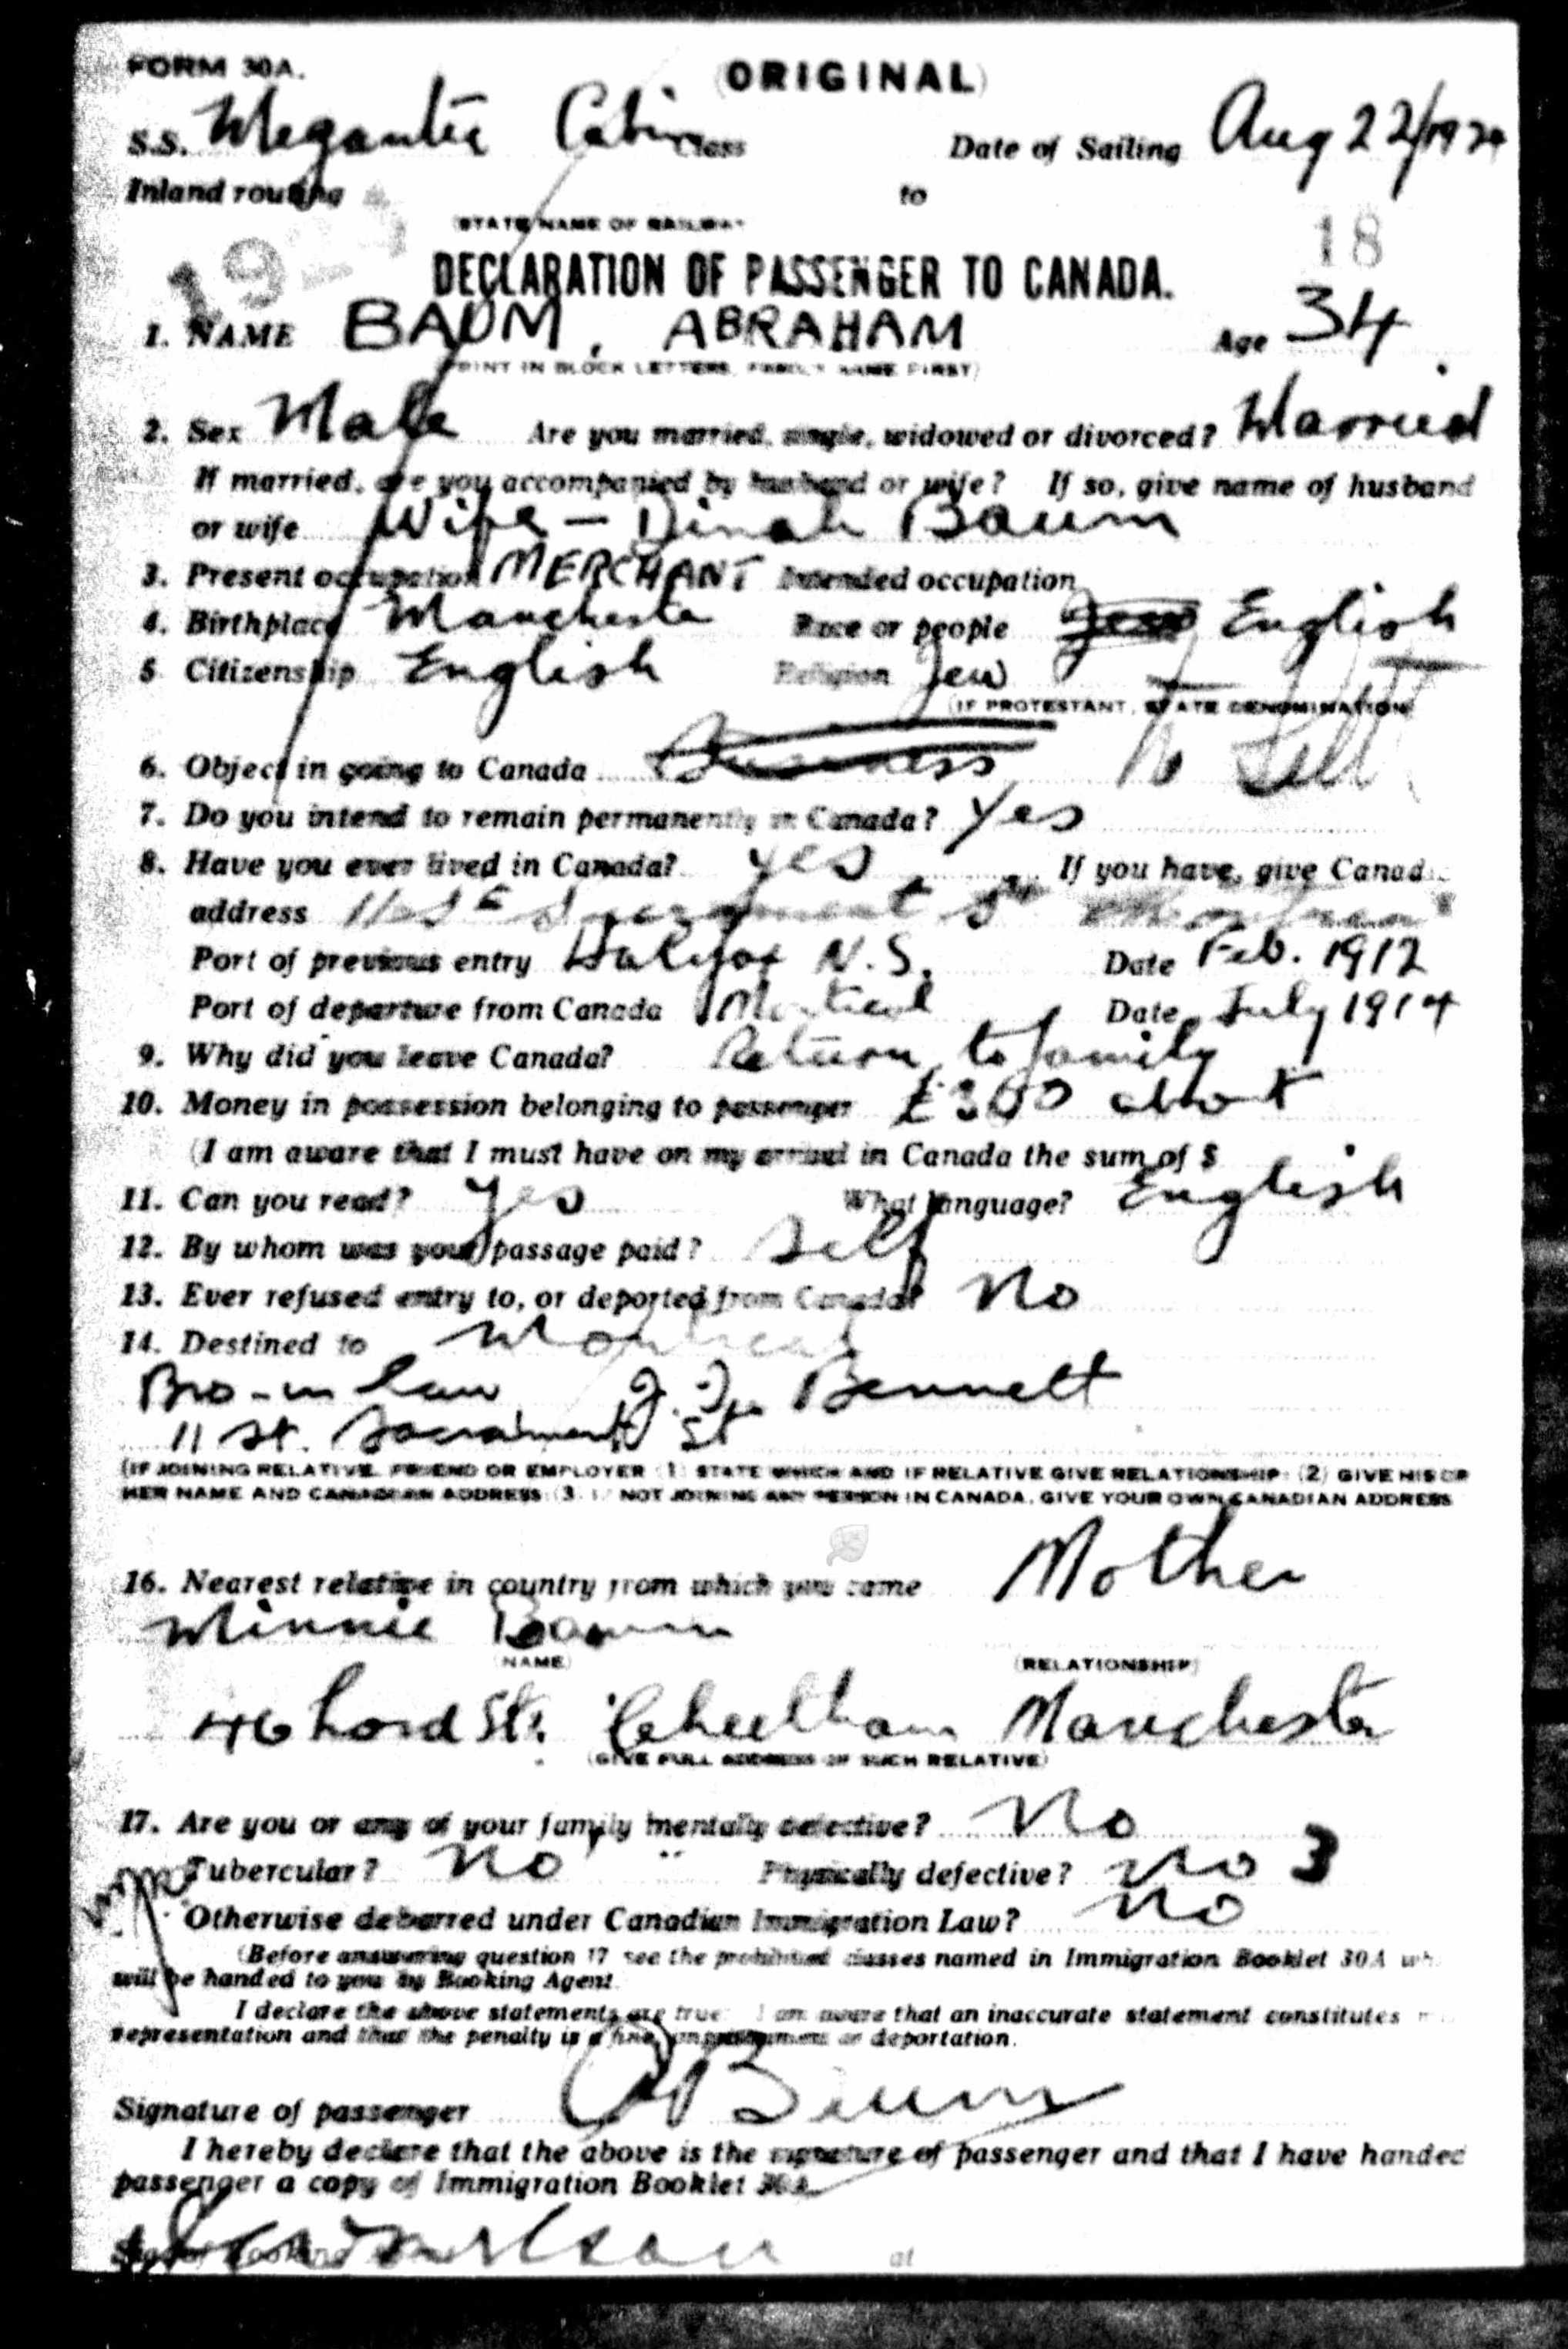 FORM 30A. (ORIGINAL)
S.S. Megantic Cabin Class Date of Sailing Aug 22/1924
Inland routing to
(STATE NAME OF RAILWAY
18
DECLARATION OF PASSENGER TO CANADA.
1. NAME BAUM, ABRAHAM Age 34
(PRINT IN BLOCK LETTERS, FAMILY NAME FIRST)
2. Sex Male Are you married, single, widowed or divorced? Married
If married, are you accompanied by husband or wife? If so, give name of husband
or wife Wife - Dinah Baum
3. Present occupation MERCHANT Intended occupation
4. Birthplace Manchester Race or people Jew English
5 Citizenship English Religion Jew
(IF PROTESTANT, STATE DENOMINATION)
6. Object in going to Canada Business
7. Do you intend to remain permanently in Canada? Yes
8. Have you ever lived in Canada? Yes If you have, give Canad
address 11 St Sacrament St Montreal
Port of previous entry Halifax N.S. Date Feb. 1912
Port of departure from Canada Montreal Date July 1914
9. Why did you leave Canada? Return to family
10. Money in possession belonging to passenger £300 about
(I am aware that I must have on my arrival in Canada the sum of $
11. Can you read? Yes What language? English
12. By whom was your passage paid? Self
13. Ever refused entry to, or deported from Canada? No
14. Destined to Montreal
Bro-in law J. Bennett
11 St. Sacrament St
(IF JOINING RELATIVE, FRIEND OR EMPLOYER (1) STATE WHICH AND IF RELATIVE GIVE RELATIONSHIP: (2) GIVE HIS OR
HER NAME AND CANADIAN ADDRESS: (3) IF NOT JOINING ANY PERSON IN CANADA, GIVE YOUR OWN CANADIAN ADDRESS
16. Nearest relative in country from which you came Mother
Minnie Baum
(NAME) (RELATIONSHIP)
46 Lord St. Cheetham Manchester
(GIVE FULL ADDRESS OF SUCH RELATIVE)
17. Are you or any of your family mentally defective? No
Tubercular? No Physically defective? No 3
Otherwise debarred under Canadian Immigration Law? No
(Before answering question 17 see the prohibited classes named in Immigration Booklet 30A wh
will be handed to you by Booking Agent
I declare the above statements are true. I am aware that an inaccurate statement constitutes
representation and that the penalty is a fine, imprisonment or deportation.
Signature of passenger A Baum
I hereby declare that the above is the signature of passenger and that I have handed
passenger a copy of Immigration Booklet 30A
at